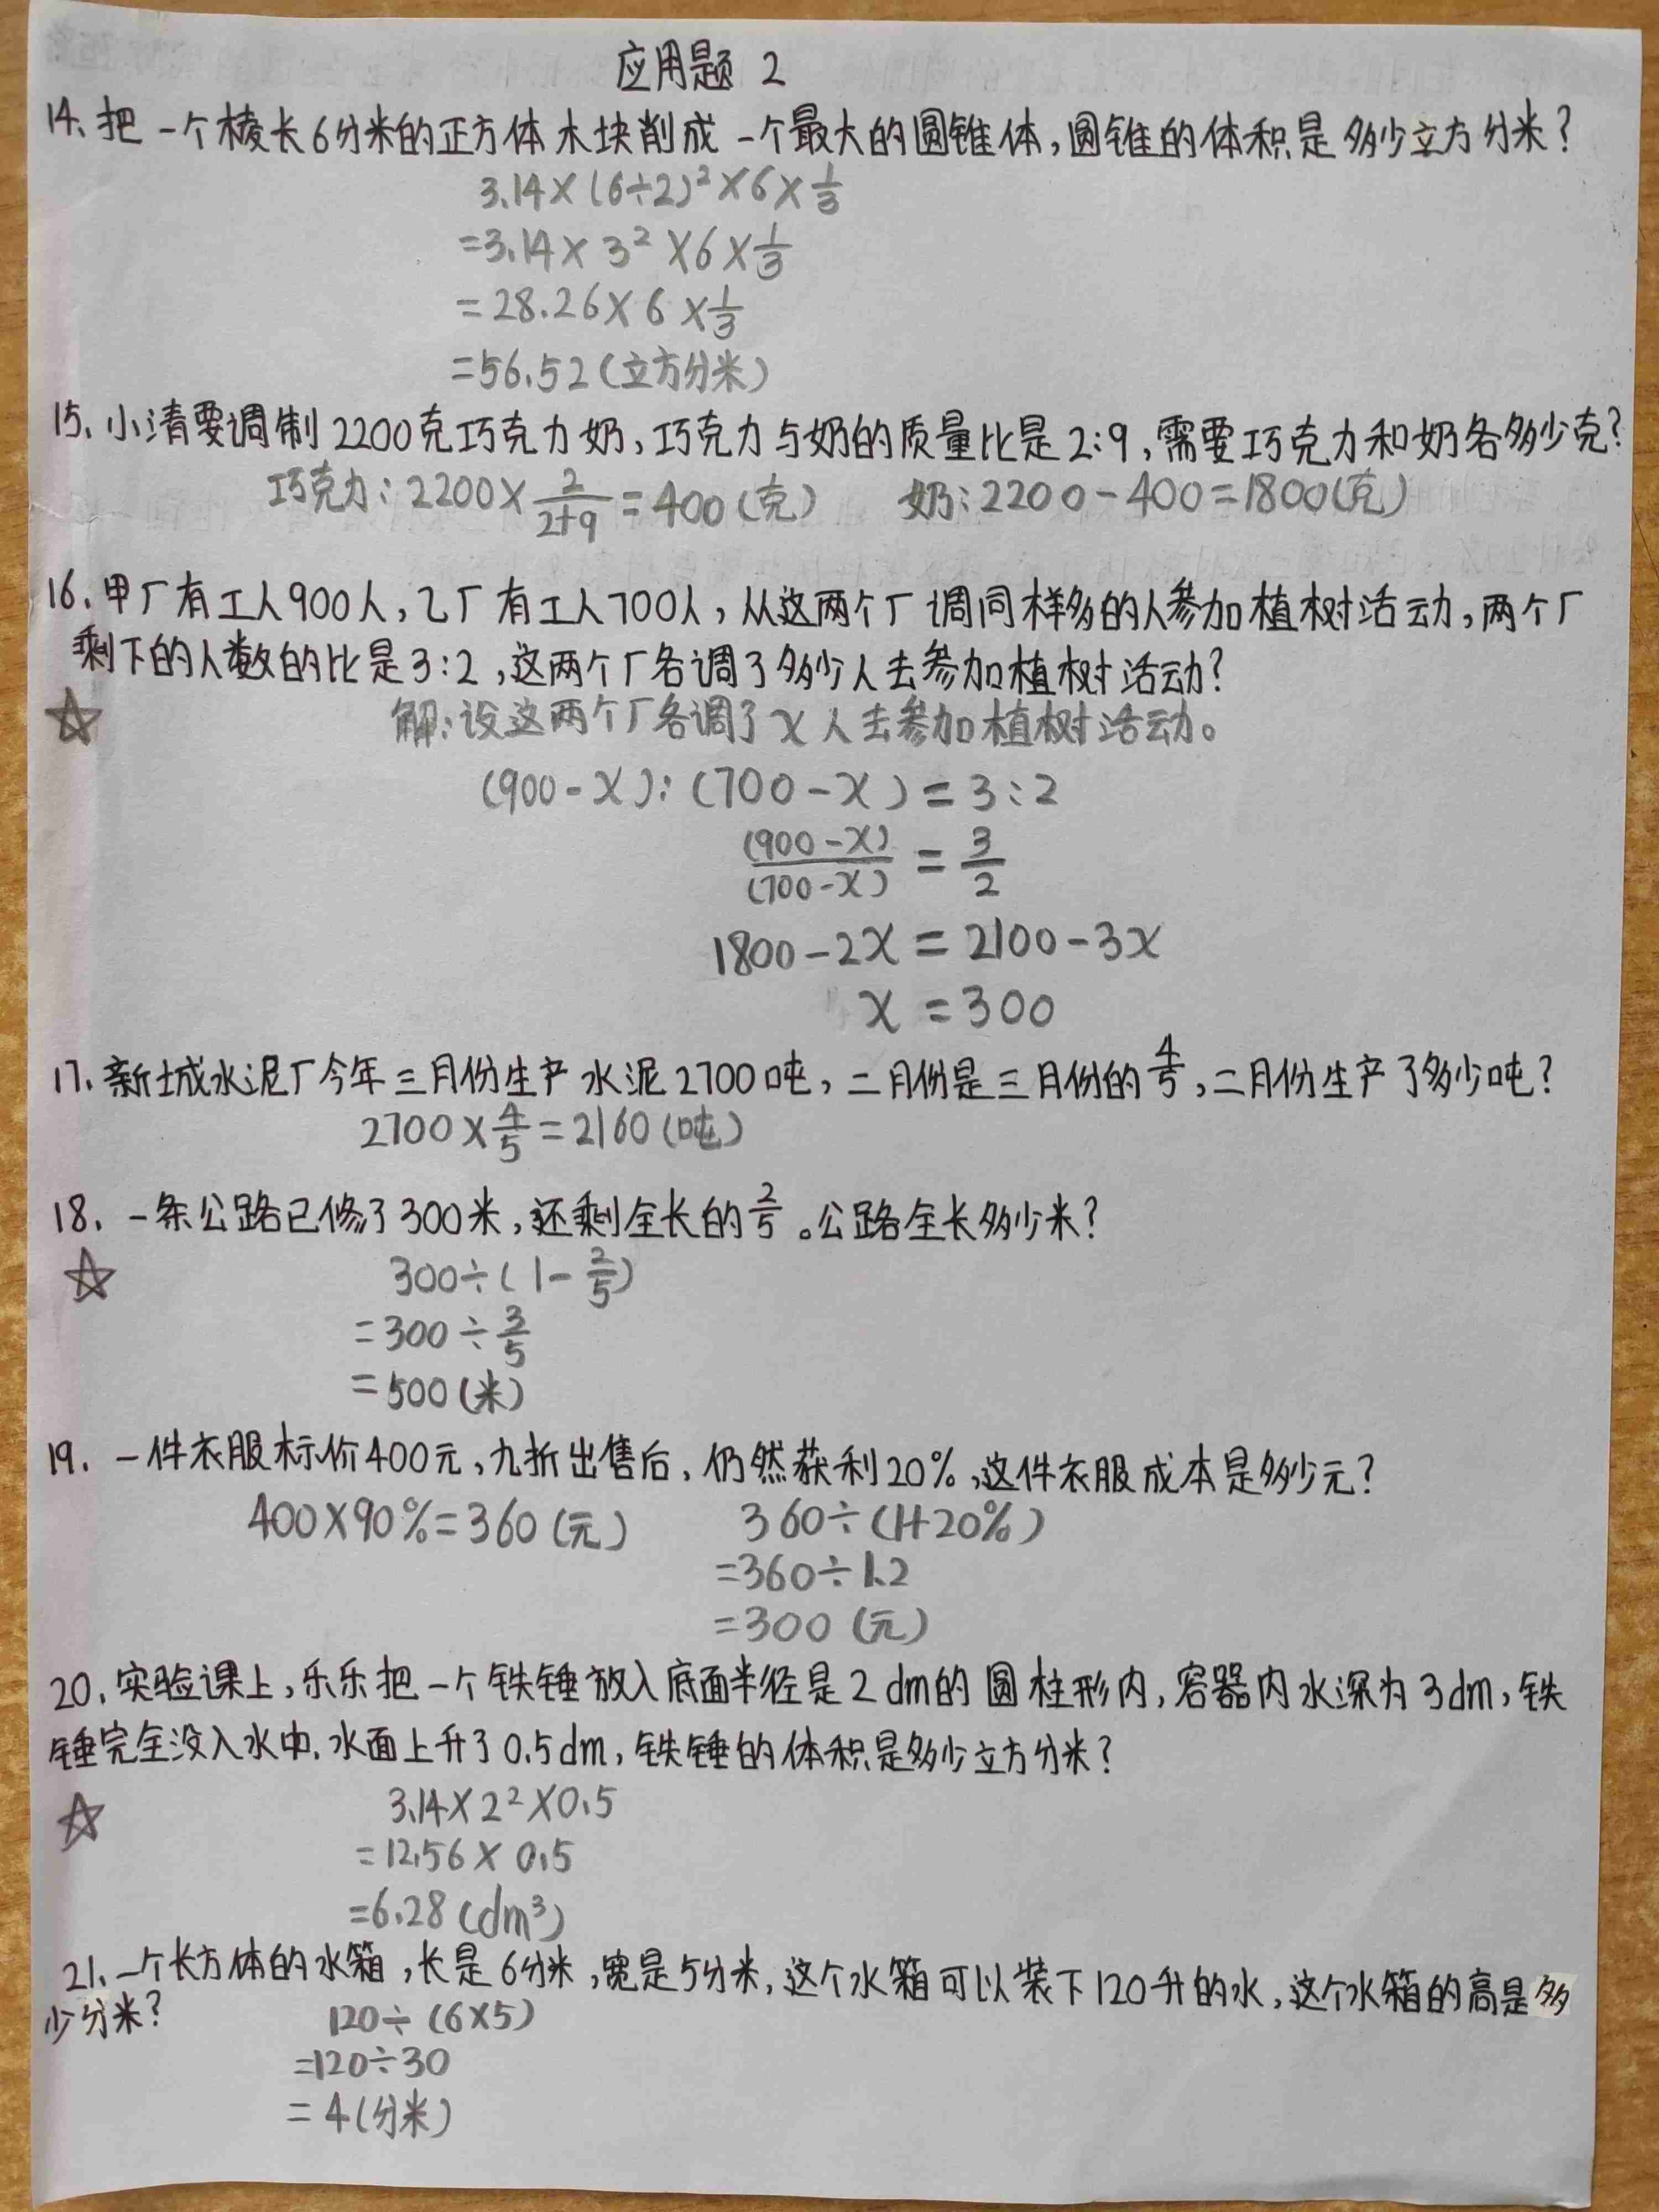 应用题 2
14、把一个棱长6分米的正方体木块削成一个最大的圆锥体,圆锥的体积是多少立方分米?
3.14×(6÷2)²×6×1/3
=3.14×3²×6×1/3
=28.26×6×1/3
=56.52(立方分米)
15、小清要调制2200克巧克力奶,巧克力与奶的质量比是2:9,需要巧克力和奶各多少克?
巧克力:2200×2/(2+9)=400(克) 奶:2200-400=1800(克)
16、甲厂有工人900人,乙厂有工人700人,从这两个厂调同样多的人参加植树活动,两个厂
剩下的人数的比是3:2,这两个厂各调了多少人去参加植树活动?
☆ 解:设这两个厂各调了x人去参加植树活动。
(900-x):(700-x)=3:2
(900-x)/(700-x)=3/2
1800-2x=2100-3x
x=300
17、新城水泥厂今年三月份生产水泥2700吨,二月份是三月份的4/5,二月份生产了多少吨?
2700×4/5=2160(吨)
18、一条公路已修了300米,还剩全长的2/5。公路全长多少米?
☆ 300÷(1-2/5)
=300÷3/5
=500(米)
19、一件衣服标价400元,九折出售后,仍然获利20%,这件衣服成本是多少元?
400×90%=360(元) 360÷(1+20%)
=360÷1.2
=300(元)
20、实验课上,乐乐把一个铁锤放入底面半径是2dm的圆柱形内,容器内水深为3dm,铁
锤完全没入水中,水面上升了0.5dm,铁锤的体积是多少立方分米?
☆ 3.14×2²×0.5
=12.56×0.5
=6.28(dm³)
21、一个长方体的水箱,长是6分米,宽是5分米,这个水箱可以装下120升的水,这个水箱的高是多
少分米?
120÷(6×5)
=120÷30
=4(分米)